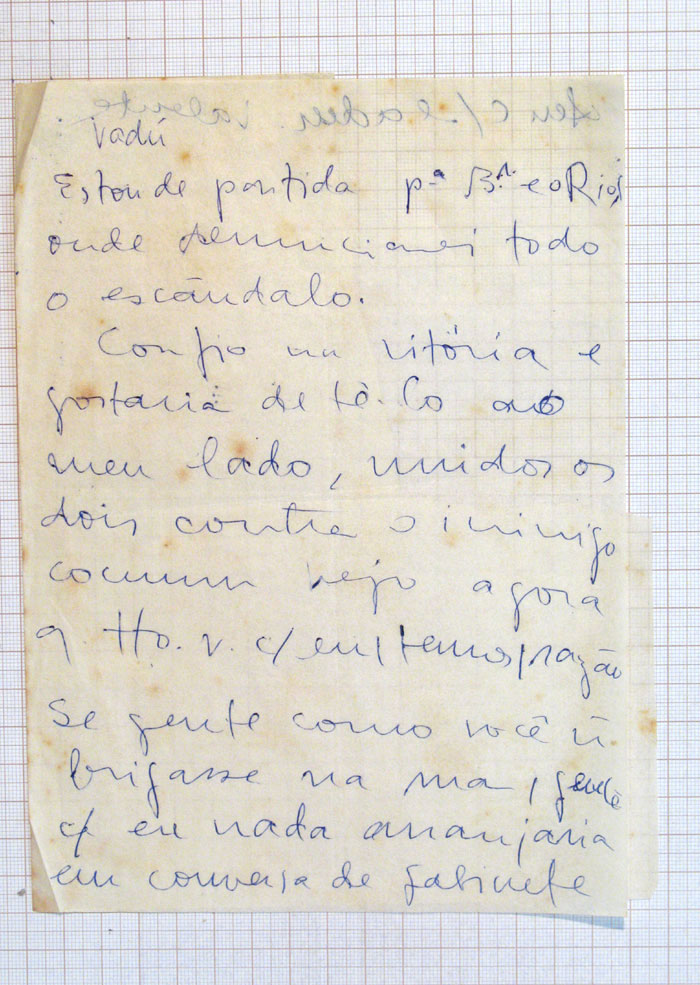 Vadú
Estou de partida pª Bª. e o Rio,
onde denunciarei todo
o escândalo.
Confio na vitória e
gostaria de tê-lo ao
meu lado, unidos os
dois contra o inimigo
comum vejo agora
q. tto. v. c/ eu, temos razão
Se gente como você ñ
brigasse na rua, gente
c/ eu nada arranjaria
em conversa de gabinete